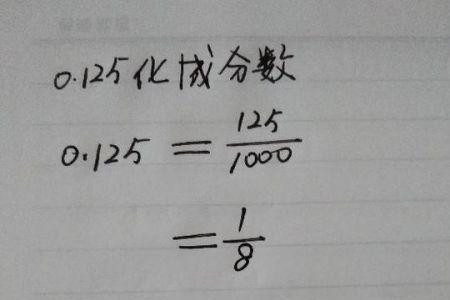 0.125化成分数
0.125 = 125/1000
= 1/8